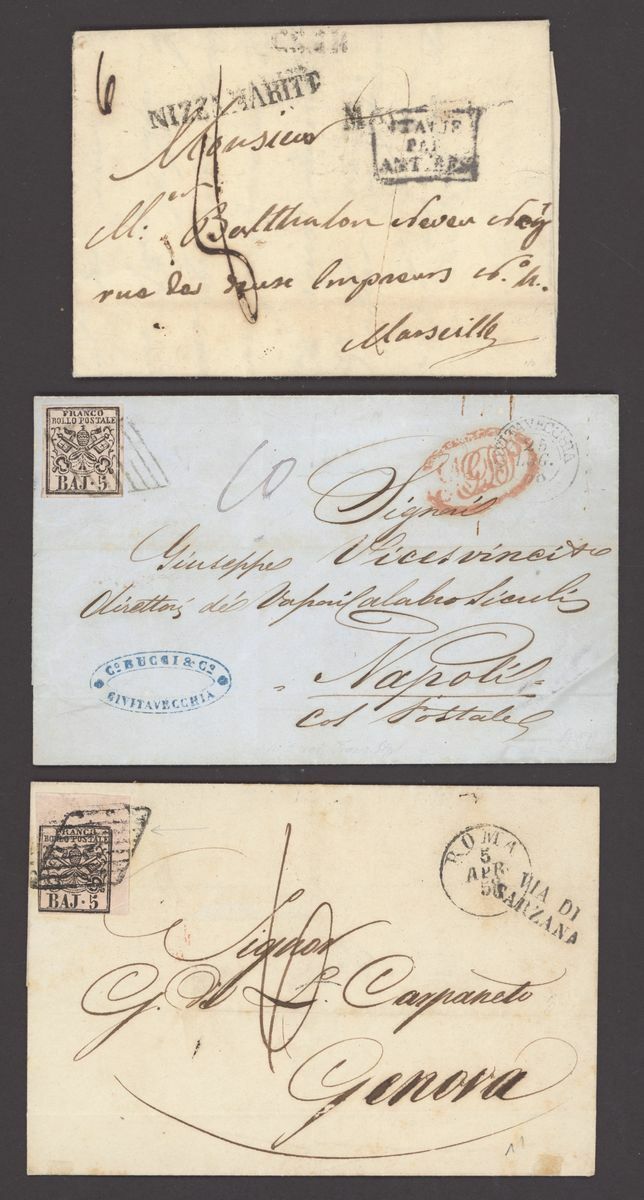 6
NIZZA MARITE
ITALIE
PAR
ANTIBES
Monsieur
Mr. Balthalon Neveu
rue des deux Empreurs N.º 4.
Marseille
FRANCO
BOLLO POSTALE
BAJ·5
CIVITAVECCHIA
10
Signori
Giuseppe Vicesvinci & c
direttori de Vapori Calabro Siculi
Co. BUCCI & Co.
CIVITAVECCHIA
Napoli
col Postale
FRANCO
BOLLO POSTALE
BAJ·5
ROMA
5
APR
58
VIA DI
SARZANA
Signor
G. di L. Carpaneto
Genova